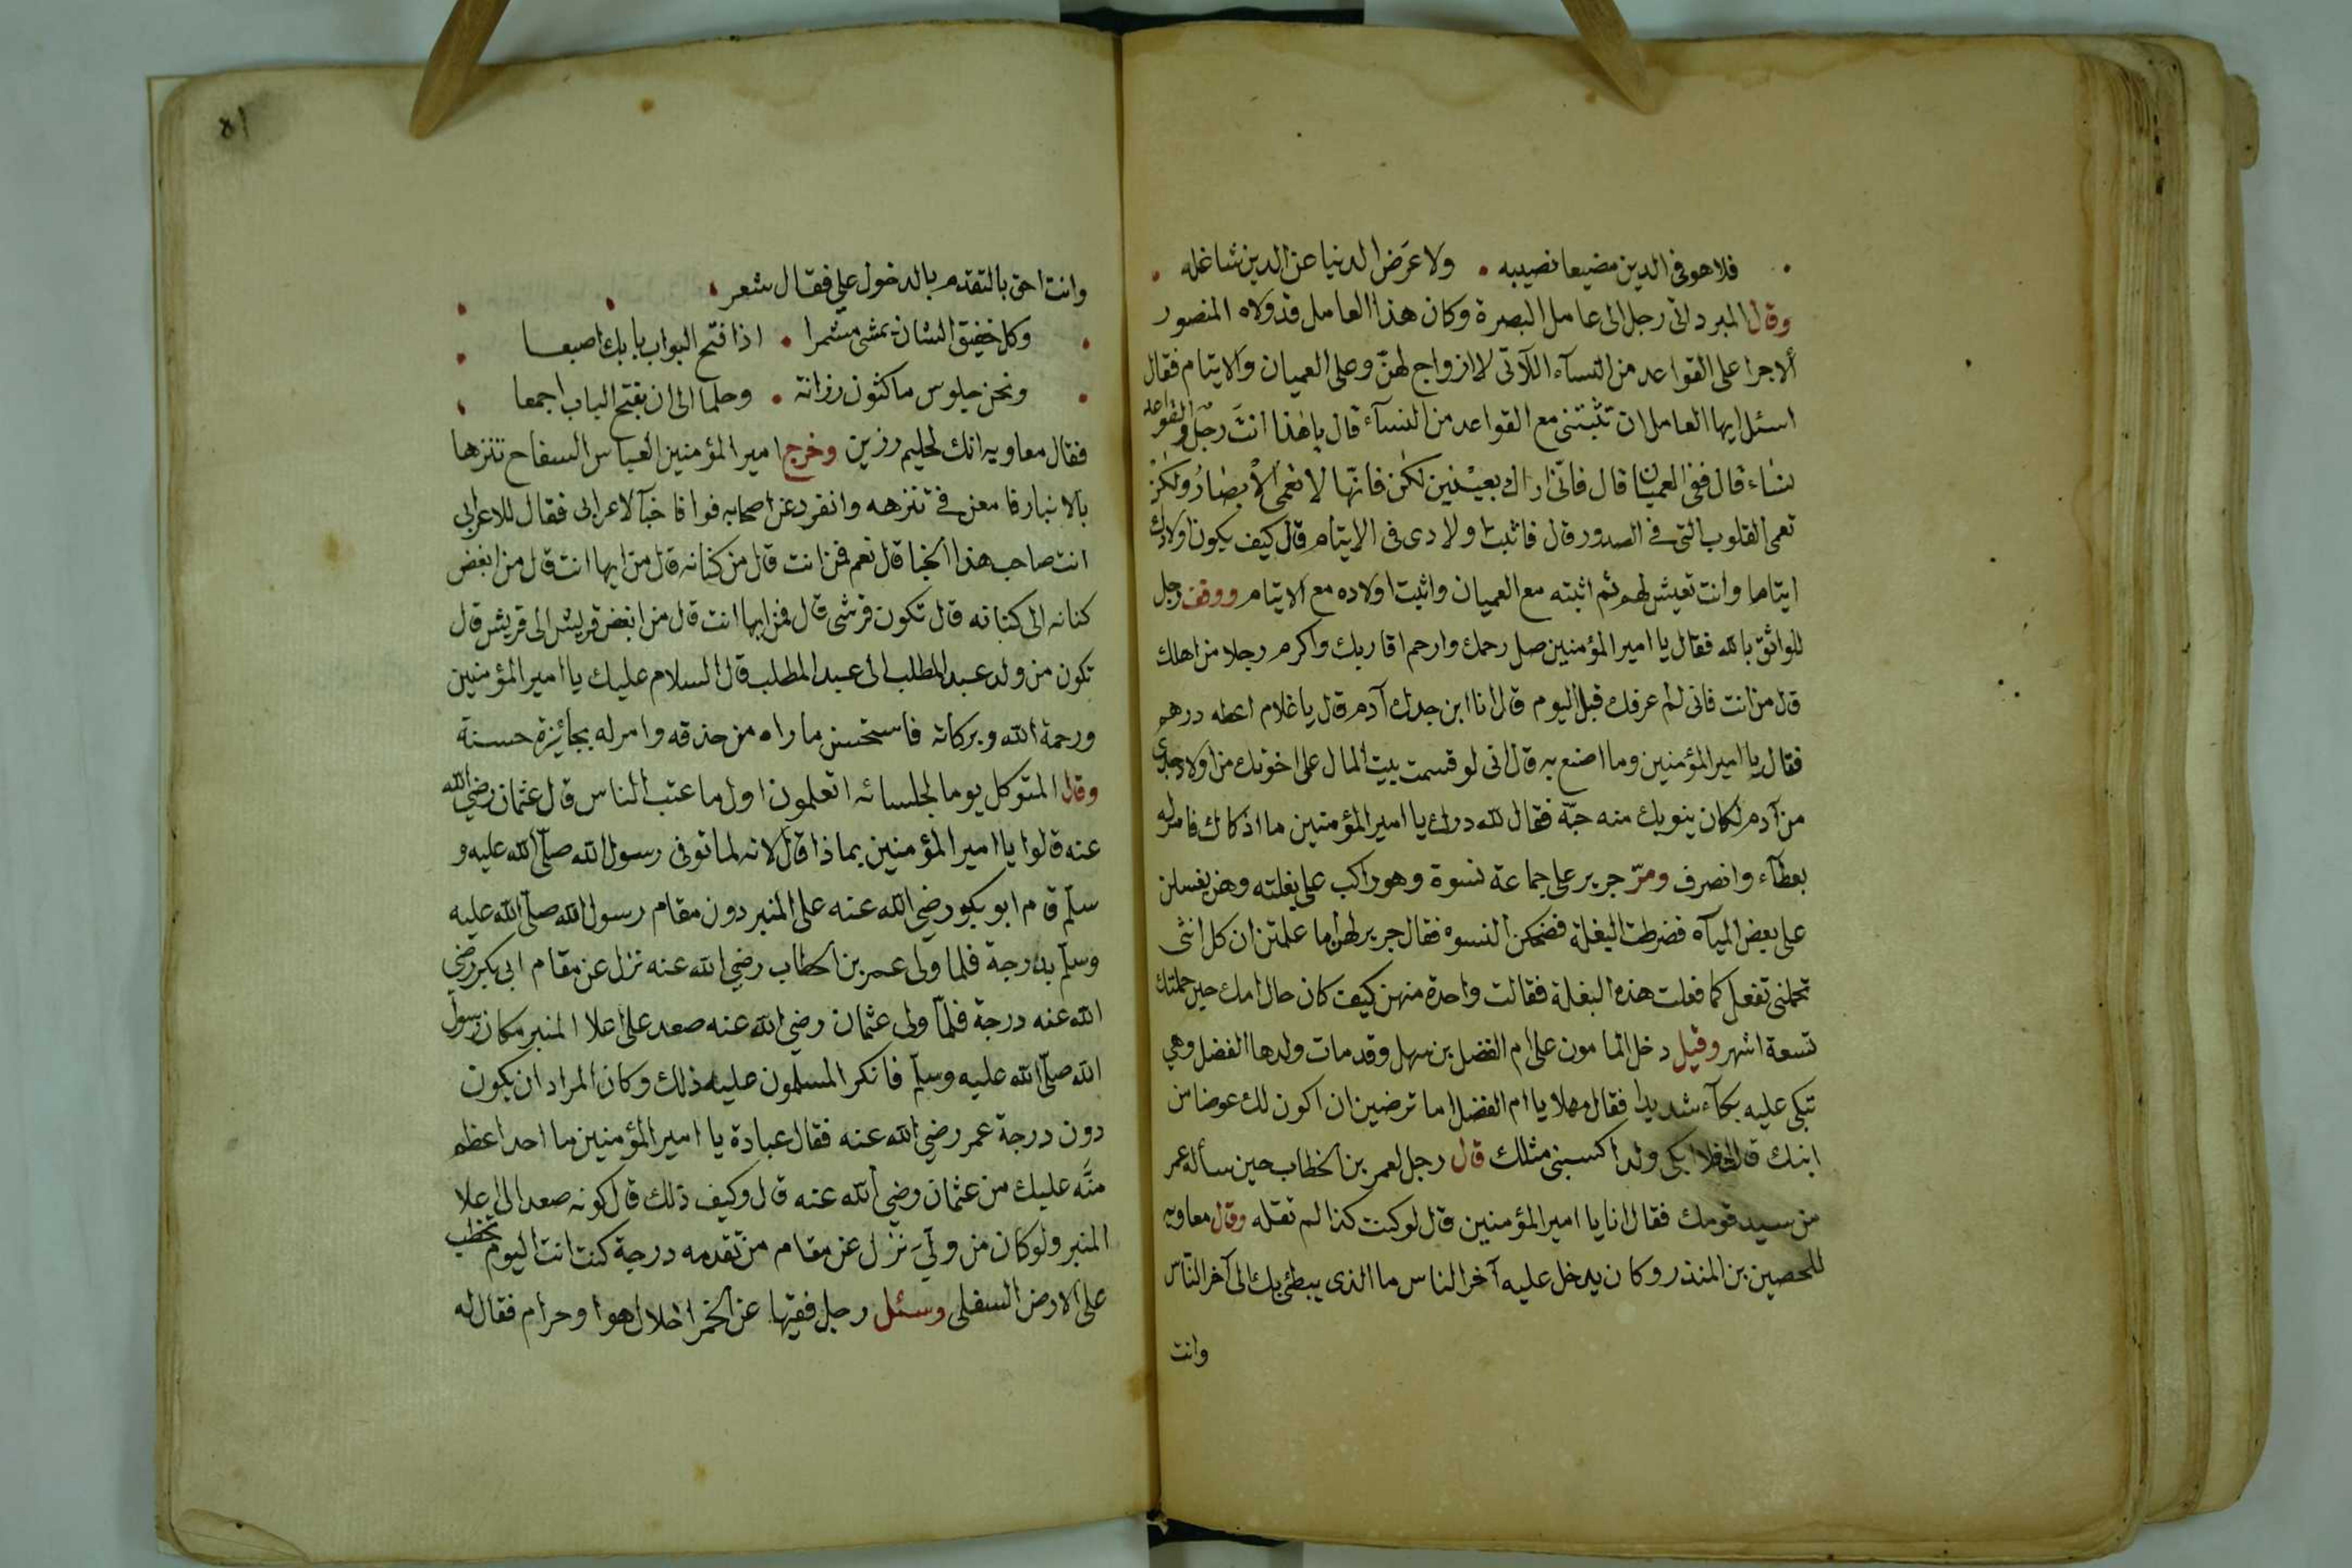 فلا هو في الدين مضيعا نصيبه • ولا عَرَض الدنيا عن الدين شاغله •
وقال المبرد اتى رجل الى عامل البصرة وكان هذا العامل قد ولاه المنصور
ألاجرا على القواعد من النسآء اللآتى لا ازواج لهنّ وعلى العميان والايتام فقال
اسئل ايها العامل ان تثبتنى مع القواعد من النسآء قال يا هٰذا انتَ رجل والقواعد
نساء قال ففى العميان قال فانّى اراك بعيْنين لكن فانّها لا تعمى الأبصَارُ ولكنْ
تعمى القلوب التى فى الصدور قال فاثبت اولادى فى الايتام قال كيف يكون اولادك
ايتاما وانت تعيش لهم ثم اثبته مع العميان واثبت اولاده مع الايتام ووقف رجل
للواثق بالله فقال يا امير المؤمنين صل رحمك وارحم اقاربك واكرم رجلا من اهلك
قال من انت فانى لم عرفك قبل اليوم قال انا ابن جدك آدم قال يا غلام اعطه درهم
فقال يا امير المؤمنين وما اصنع به قال انى لو قسمت بيت المال على اخوتك من اولاد جدى
من آدم لكان ينوبك منه حبّة فقال لله درك يا امير المؤمنين ما اذكاك فامر له
بعطآء وانصرف ومرّ جرير على جماعة نسوة وهو راكب على بغلته وهن يغسلن
على بعض الميآه فضرطت البغلة فضحكن النسوه فقال جرير لهن اما علمتن ان كل انثى
تحملنى تفعل كما فعلت هذه البغلة فقالت واحدة منهن كيف كان حال امك حين حملتك
تسعة اشهر وقيل دخل المامون على ام الفضل بن سهل وقد مات ولدها الفضل وهي
تبكى عليه بكآء شديدا فقال مهلا يا ام الفضل اما ترضين ان اكون لك عوضا من
ابنك قالت افلا ابكى ولدا اكسبنى مثلك قال رجل لعمر بن الخطاب حين سأله عمر
من سيد قومك فقال انا يا امير المؤمنين قال لو كنت كذا لم تقله وقال معاويه
للحصين بن المنذر وكان يدخل عليه آخر الناس ما الذى يبطئ بك الى آخر النّاس
وانت
٨١
وانت احق بالتقدم بالدخول علي فقال شعر
وكل خفيف الشان يمشى مشمرا • اذا فتح البواب بابك اصبعا
ونحن جلوس ماكثون رزانة • وحلما الى ان يفتح الباب اجمعا
فقال معاويه انك لحليم رزين وخرج امير المؤمنين العباس السفاح تنزها
بالانبار فامعن فى تنزهه وانفرد عن اصحابه فوافا خبآ لاعرابى فقال للاعرابى
انت صاحب هذا الخبا قال نعم فمن انت قال من كنانه قال من ايها انت قال من ابغض
كنانه الى كنانه قال تكون قرشى قال فمن ايها انت قال من ابغض قريش الى قريش قال
تكون من ولد عبد المطلب الى عبد المطلب قال السلام عليك يا امير المؤمنين
ورحمة الله وبركاته فاستحسن ما راه من حذقه وامر له بجائزة حسنة
وقال المتوكل يوما لجلسائه اتعلمون اول ما عتب الناس قال عثمان رضي الله
عنه قالوا يا امير المؤمنين بماذا قال لانه لما توفى رسول الله صلّى الله عليه و
سلّم قام ابو بكر رضي الله عنه على المنبر دون مقام رسول الله صلّى الله عليه
وسلّم بدرجة فلما ولى عمر بن الخطاب رضي الله عنه نزل عن مقام ابى بكر رضي
الله عنه درجة فلمّا ولى عثمان رضي الله عنه صعد على اعلا المنبر مكان رسول
الله صلّى الله عليه وسلّم فانكر المسلمون عليه ذلك وكان المراد ان يكون
دون درجة عمر رضي الله عنه فقال عبادة يا امير المؤمنين ما احد اعظم
منَّه عليك من عثمان رضي الله عنه قال وكيف ذلك قال كونه صعد الى اعلا
المنبر ولو كان من ولّي نزل عن مقام من تقدمه درجة كنت انت اليوم تخطب
على الارض السفلى وسئل رجل فقيها عن الخمر احلال هو او حرام فقال له